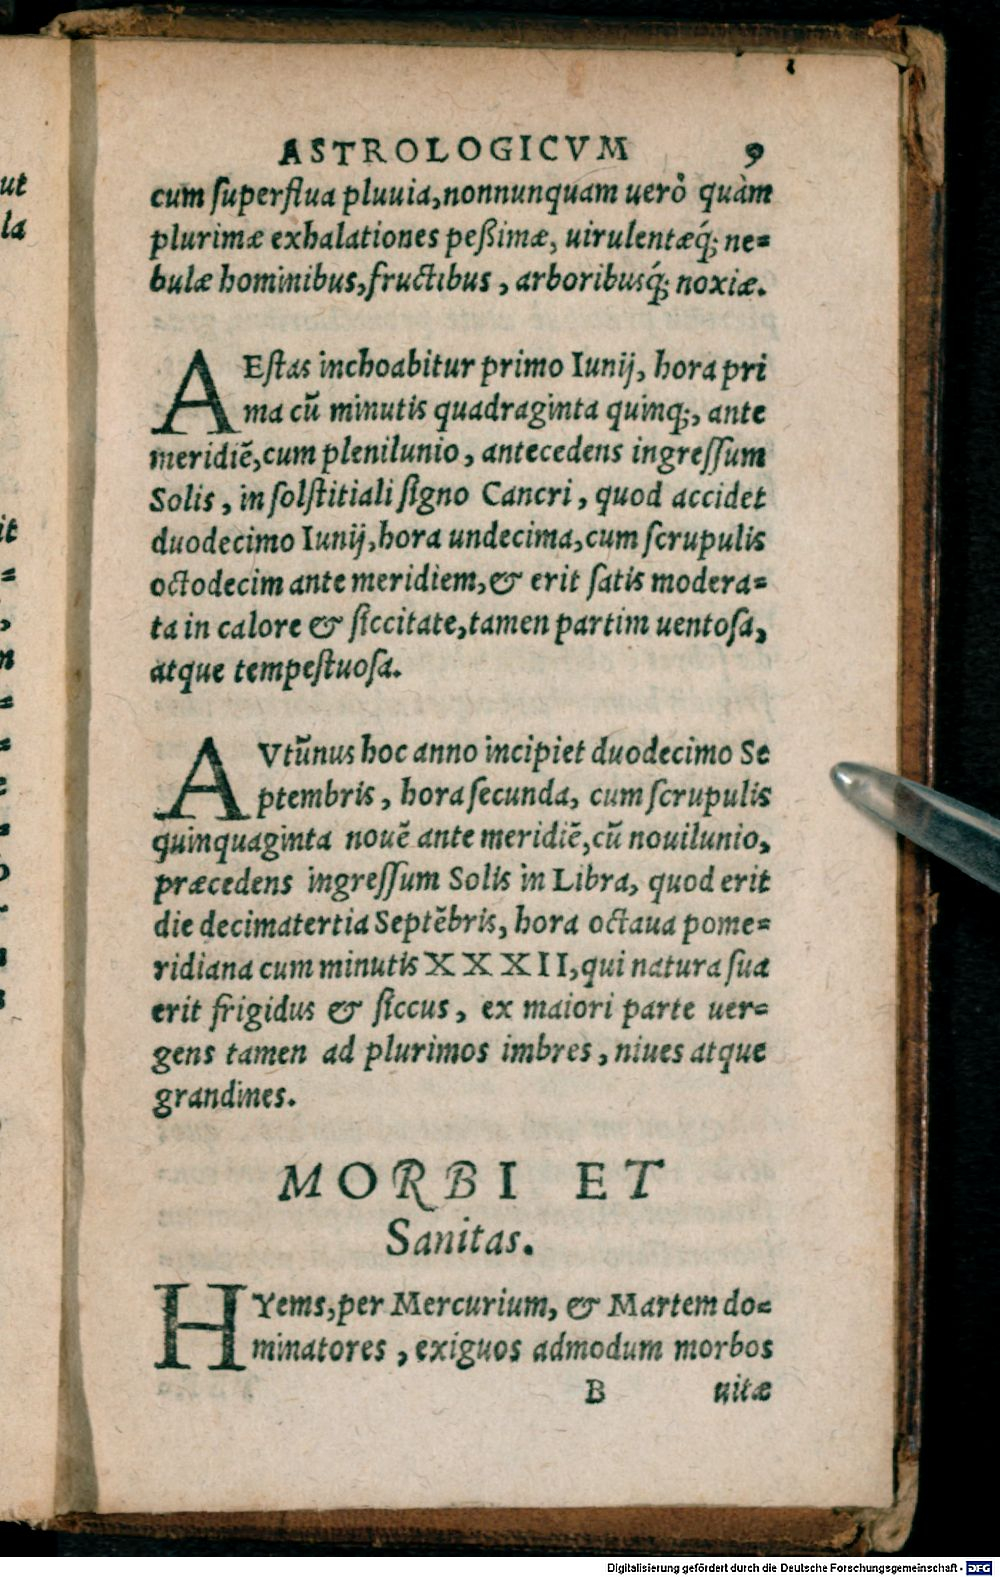 ASTROLOGICVM 9
cum ſuperflua pluuia, nonnunquam uerò quàm
plurimæ exhalationes peßimæ, uirulentæq́; ne=
bulæ hominibus, fructibus, arboribusq́; noxiæ.
AEſtas inchoabitur primo Iunij, hora pri
ma cū minutis quadraginta quinq;, ante
meridiē, cum plenilunio, antecedens ingreſſum
Solis, in ſolſtitiali ſigno Cancri, quod accidet
duodecimo Iunij, hora undecima, cum ſcrupulis
octodecim ante meridiem, & erit ſatis modera=
ta in calore & ſiccitate, tamen partim uentoſa,
atque tempeſtuoſa.
AVtūnus hoc anno incipiet duodecimo Se
ptembris, hora ſecunda, cum ſcrupulis
quinquaginta nouē ante meridiē, cū nouilunio,
præcedens ingreſſum Solis in Libra, quod erit
die decimatertia Septēbris, hora octaua pome=
ridiana cum minutis XXXII, qui natura ſua
erit frigidus & ſiccus, ex maiori parte uer=
gens tamen ad plurimos imbres, niues atque
grandines.
MORBI ET
Sanitas.
HYems, per Mercurium, & Martem do=
minatores, exiguos admodum morbos
B uitæ
ut
la
it
Digitalisierung gefördert durch die Deutsche Forschungsgemeinschaft - DFG